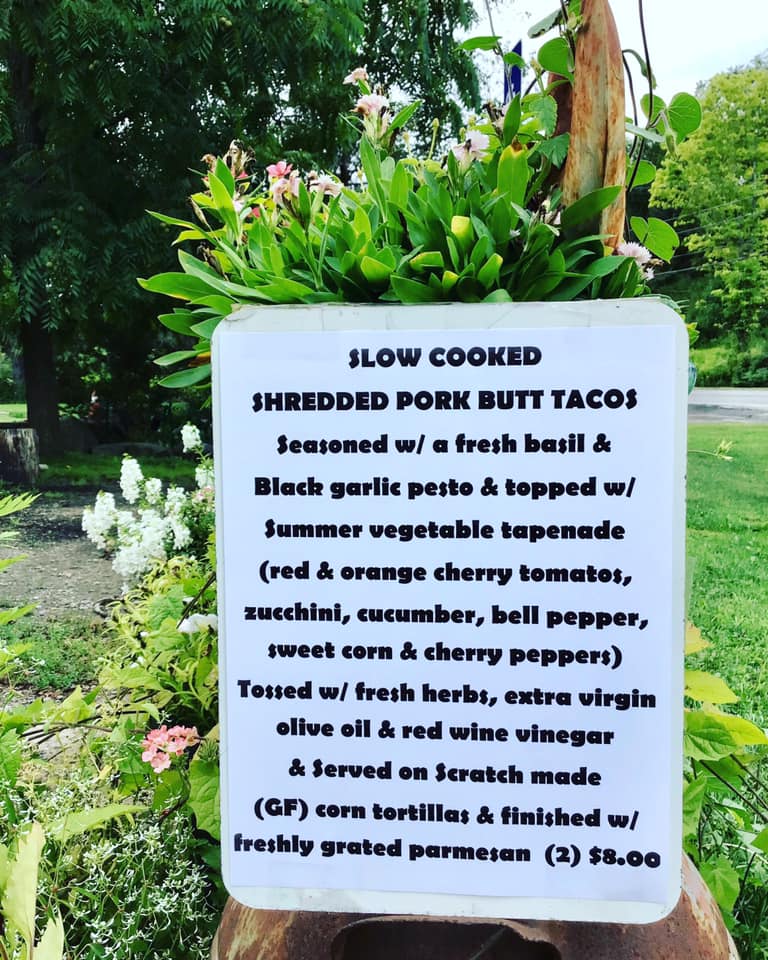 SLOW COOKED
SHREDDED PORK BUTT TACOS
Seasoned w/ a fresh basil &
Black garlic pesto & topped w/
Summer vegetable tapenade
(red & orange cherry tomatos,
zucchini, cucumber, bell pepper,
sweet corn & cherry peppers)
Tossed w/ fresh herbs, extra virgin
olive oil & red wine vinegar
& Served on Scratch made
(GF) corn tortillas & finished w/
freshly grated parmesan (2) $8.00